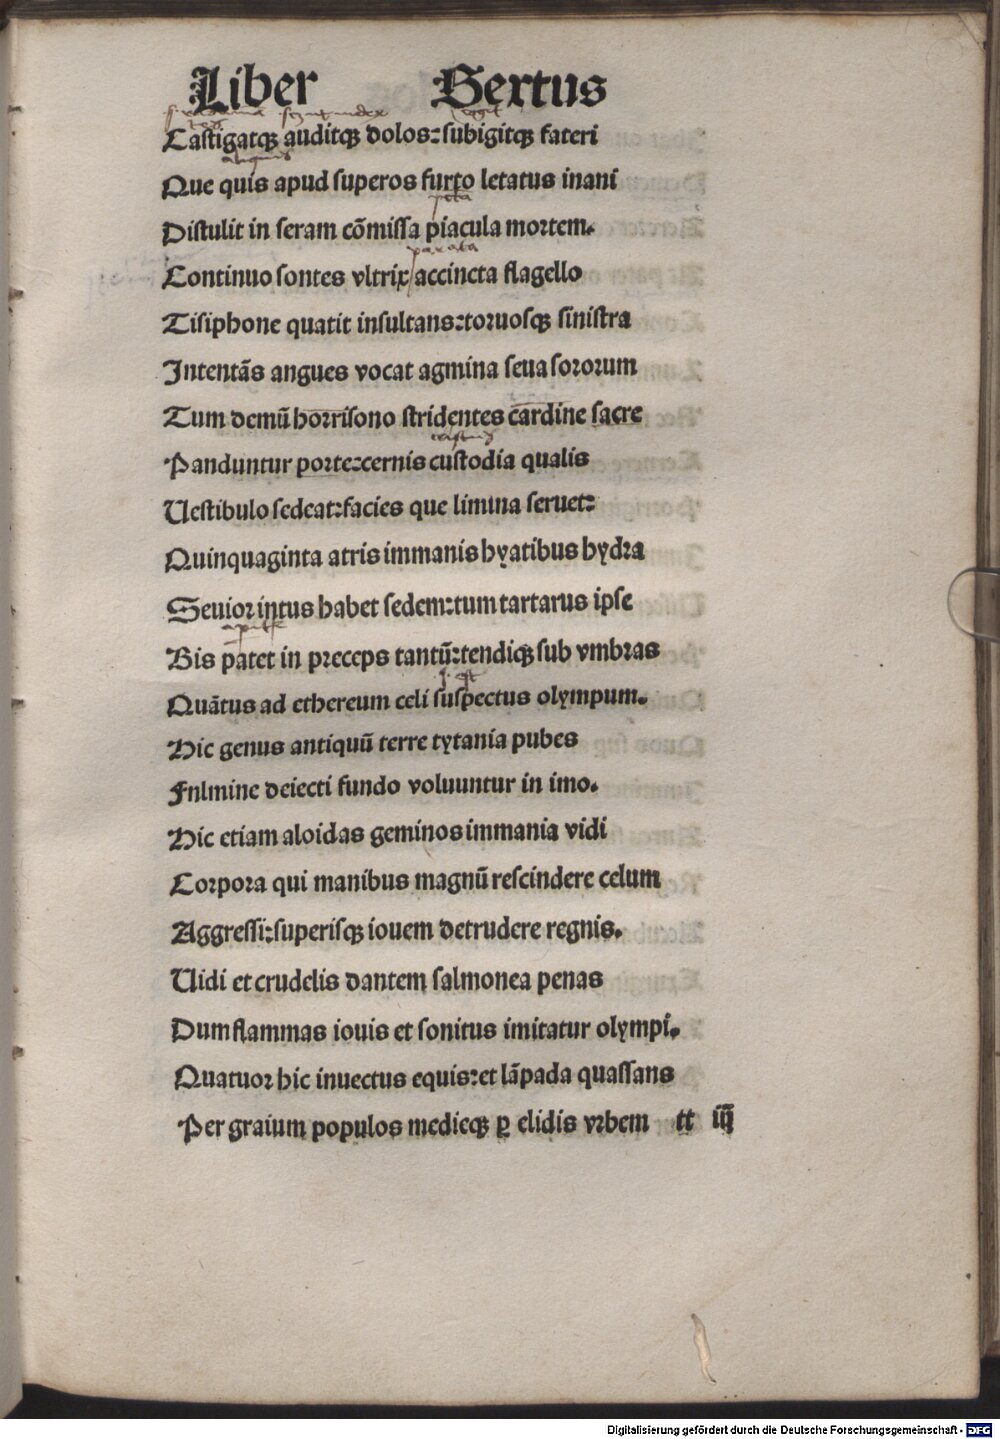 Liber Sextus
Castigatqꝫ auditqꝫ dolos: subigitqꝫ fateri
Que quis apud superos furto letatus inani
Distulit in seram cõmissa piacula mortem.
Continuo sontes vltrix accincta flagello
Tisiphone quatit insultans: toruosqꝫ sinistra
Intentãs angues vocat agmina seua sororum
Tum demũ horrisono stridentes cardine sacre
Panduntur porte: cernis custodia qualis
Uestibulo sedeat: facies que limina seruet:
Quinquaginta atris immanis hyatibus hydra
Seuior intus habet sedem: tum tartarus ipse
Bis patet in preceps tantũ: tendiqꝫ sub vmbras
Quãtus ad ethereum celi suspectus olympum.
Hic genus antiquũ terre tytania pubes
Fnlmine deiecti fundo voluuntur in imo.
Hic etiam aloidas geminos immania vidi
Corpora qui manibus magnũ rescindere celum
Aggressi: superisqꝫ iouem detrudere regnis.
Uidi et crudelis dantem salmonea penas
Dum flammas iouis et sonitus imitatur olympi.
Quatuor hic inuectus equis: et lãpada quassans
Per graium populos medieqꝫ ꝑ elidis vrbem tt iiij
Digitalisierung gefördert durch die Deutsche Forschungsgemeinschaft - DFG